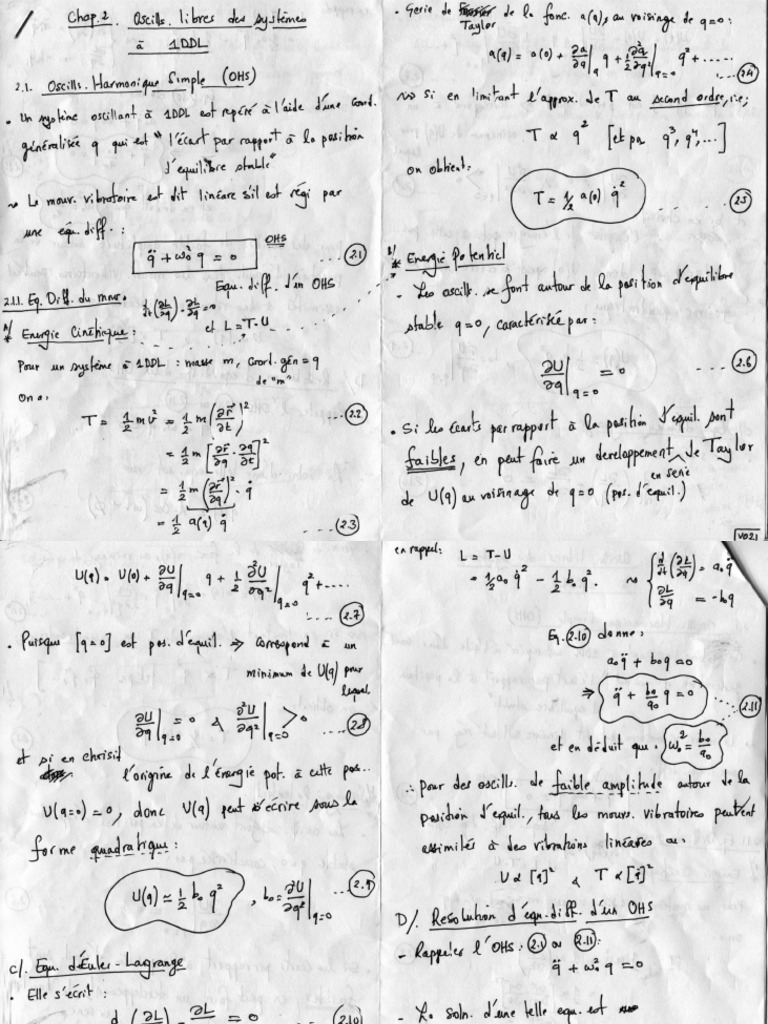 Chap. 2 Oscills. libres des systèmes
à 1DDL
2.1. Oscills. Harmonique Simple (OHS)
• Un système oscillant à 1DDL est repéré à l'aide d'une Coord.
généralisée q qui est "l'écart par rapport à la position
d'equilibre stable"
Le mouv. vibratoire est dit linéare s'il est régi par
une équ. diff.:
q̈ + ω₀² q = 0 OHS (2.1)
Equ. diff. d'un OHS
2.1.1. Eq. Diff. du mouv. d/dt(∂L/∂q̇) - ∂L/∂q = 0
A/ * Energie Cinétique: et L = T - U
Pour un système à 1DDL : masse m, Coord. gén = q
de "m"
On a:
T = 1/2 m v² = 1/2 m (∂r⃗/∂t)² (2.2)
= 1/2 m [∂r⃗/∂q · ∂q/∂t]²
= 1/2 m (∂r⃗/∂q)² · q̇
= 1/2 a(q) q̇ ....(2.3)
• Serie de Taylor de la fonc. a(q), au voisinge de q=0:
a(q) = a(0) + ∂a/∂q|q q + 1/2 ∂²a/∂q²|q=0 q² + ...... (2.4)
Si en limitant l'approx. de T au second ordre, i.e;
T ∝ q² [et pas q³, q⁴, ...]
on obtient:
T = 1/2 a(0) q̇² ...... (2.5)
B/ * Energie Potentiel
- Les oscills. se font autour de la position d'equilibre
stable q=0, caractérisée par:
∂U/∂q|q=0 = 0 ...(2.6)
• Si les écarts par rapport à la position d'equil. sont
faibles, en peut faire un dereloppement en serie de Taylor
de U(q) au voisinage de q=0 (pos. d'équil.)
V021
U(q) = U(0) + ∂U/∂q|q=0 q + 1/2 ∂²U/∂q²|q=0 q² + ....
....(2.7)
• Puisque [q=0] est pos. d'équil. ⇒ Correspond à un
minimum de U(q) pour
lequel
∂U/∂q|q=0 = 0 & ∂²U/∂q²|q=0 > 0 ...(2.8)
et si en choisit
l'origine de l'énergie pot. à cette pos..
U(q=0) = 0, donc U(q) peut s'écrire sous la
forme quadratique:
U(q) ≃ 1/2 b₀ q² , b₀ = ∂U/∂q²|q=0 ...(2.9)
C/. Equ. d'Euler-Lagrange
• Elle s'écrit :
d (∂L/ - ∂L/ = 0 ...(2.10)
en rappel: L = T - U
= 1/2 a₀ q̇² - 1/2 b₀ q². { d/dt(∂L/∂q̇) = a₀ q̈
∂L/∂q = -b₀q
Eq. (2.10) donne:
a₀q̈ + b₀q = 0
⇒ q̈ + b₀/a₀ q = 0 ....(2.11)
et en déduit que. ω₀² = b₀/a₀
∴ Pour des oscills. de faible amplitude autour de la
position d'equil., tous les mouvs. vibratoires peuvent
assimilés à des vibrations linéares ou:
U ∝ [q]² & T ∝ [q̇]²
D/. Resolution d'équ. diff. d'un OHS
- Rappeler l'OHS: (2.1) ou (2.11):
q̈ + ω₀² q = 0
- La soln. d'une telle equ. est